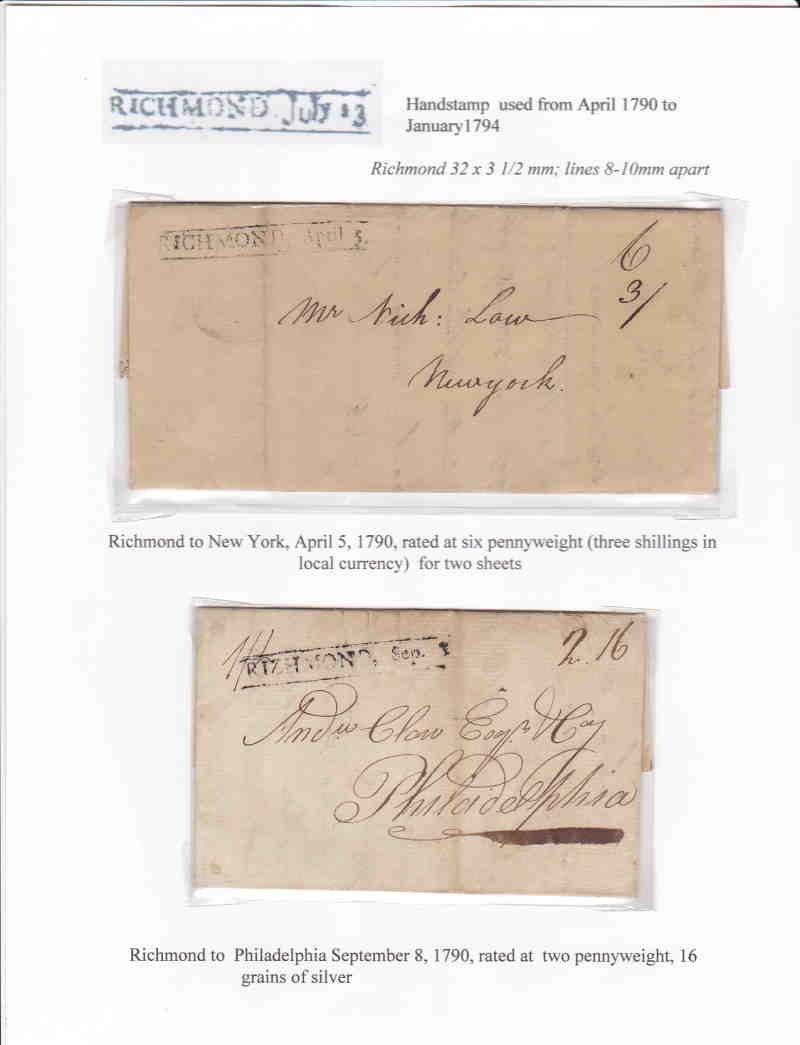 RICHMOND, July 13
Handstamp used from April 1790 to
January1794
Richmond 32 x 3 1/2 mm; lines 8-10mm apart
RICHMOND, April 5.
6
3/
Mr Nich: Low
Newyork.
Richmond to New York, April 5, 1790, rated at six pennyweight (three shillings in
local currency) for two sheets
RICHMOND, Sep. 8
2.16
Andw Clow Esqr & Coy
Philadelphia
Richmond to Philadelphia September 8, 1790, rated at two pennyweight, 16
grains of silver